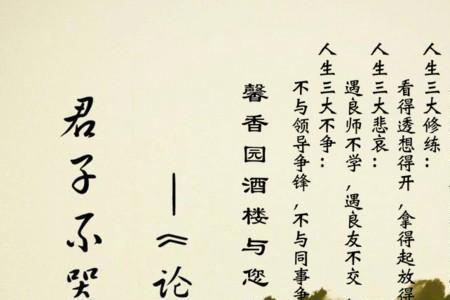 人生三大修练：
看得透想得开，拿得起放得
人生三大悲哀：
遇良师不学，遇良友不交
人生三大不争：
不与领导争锋，不与同事争
馨香园酒楼与您
—《论
君子不